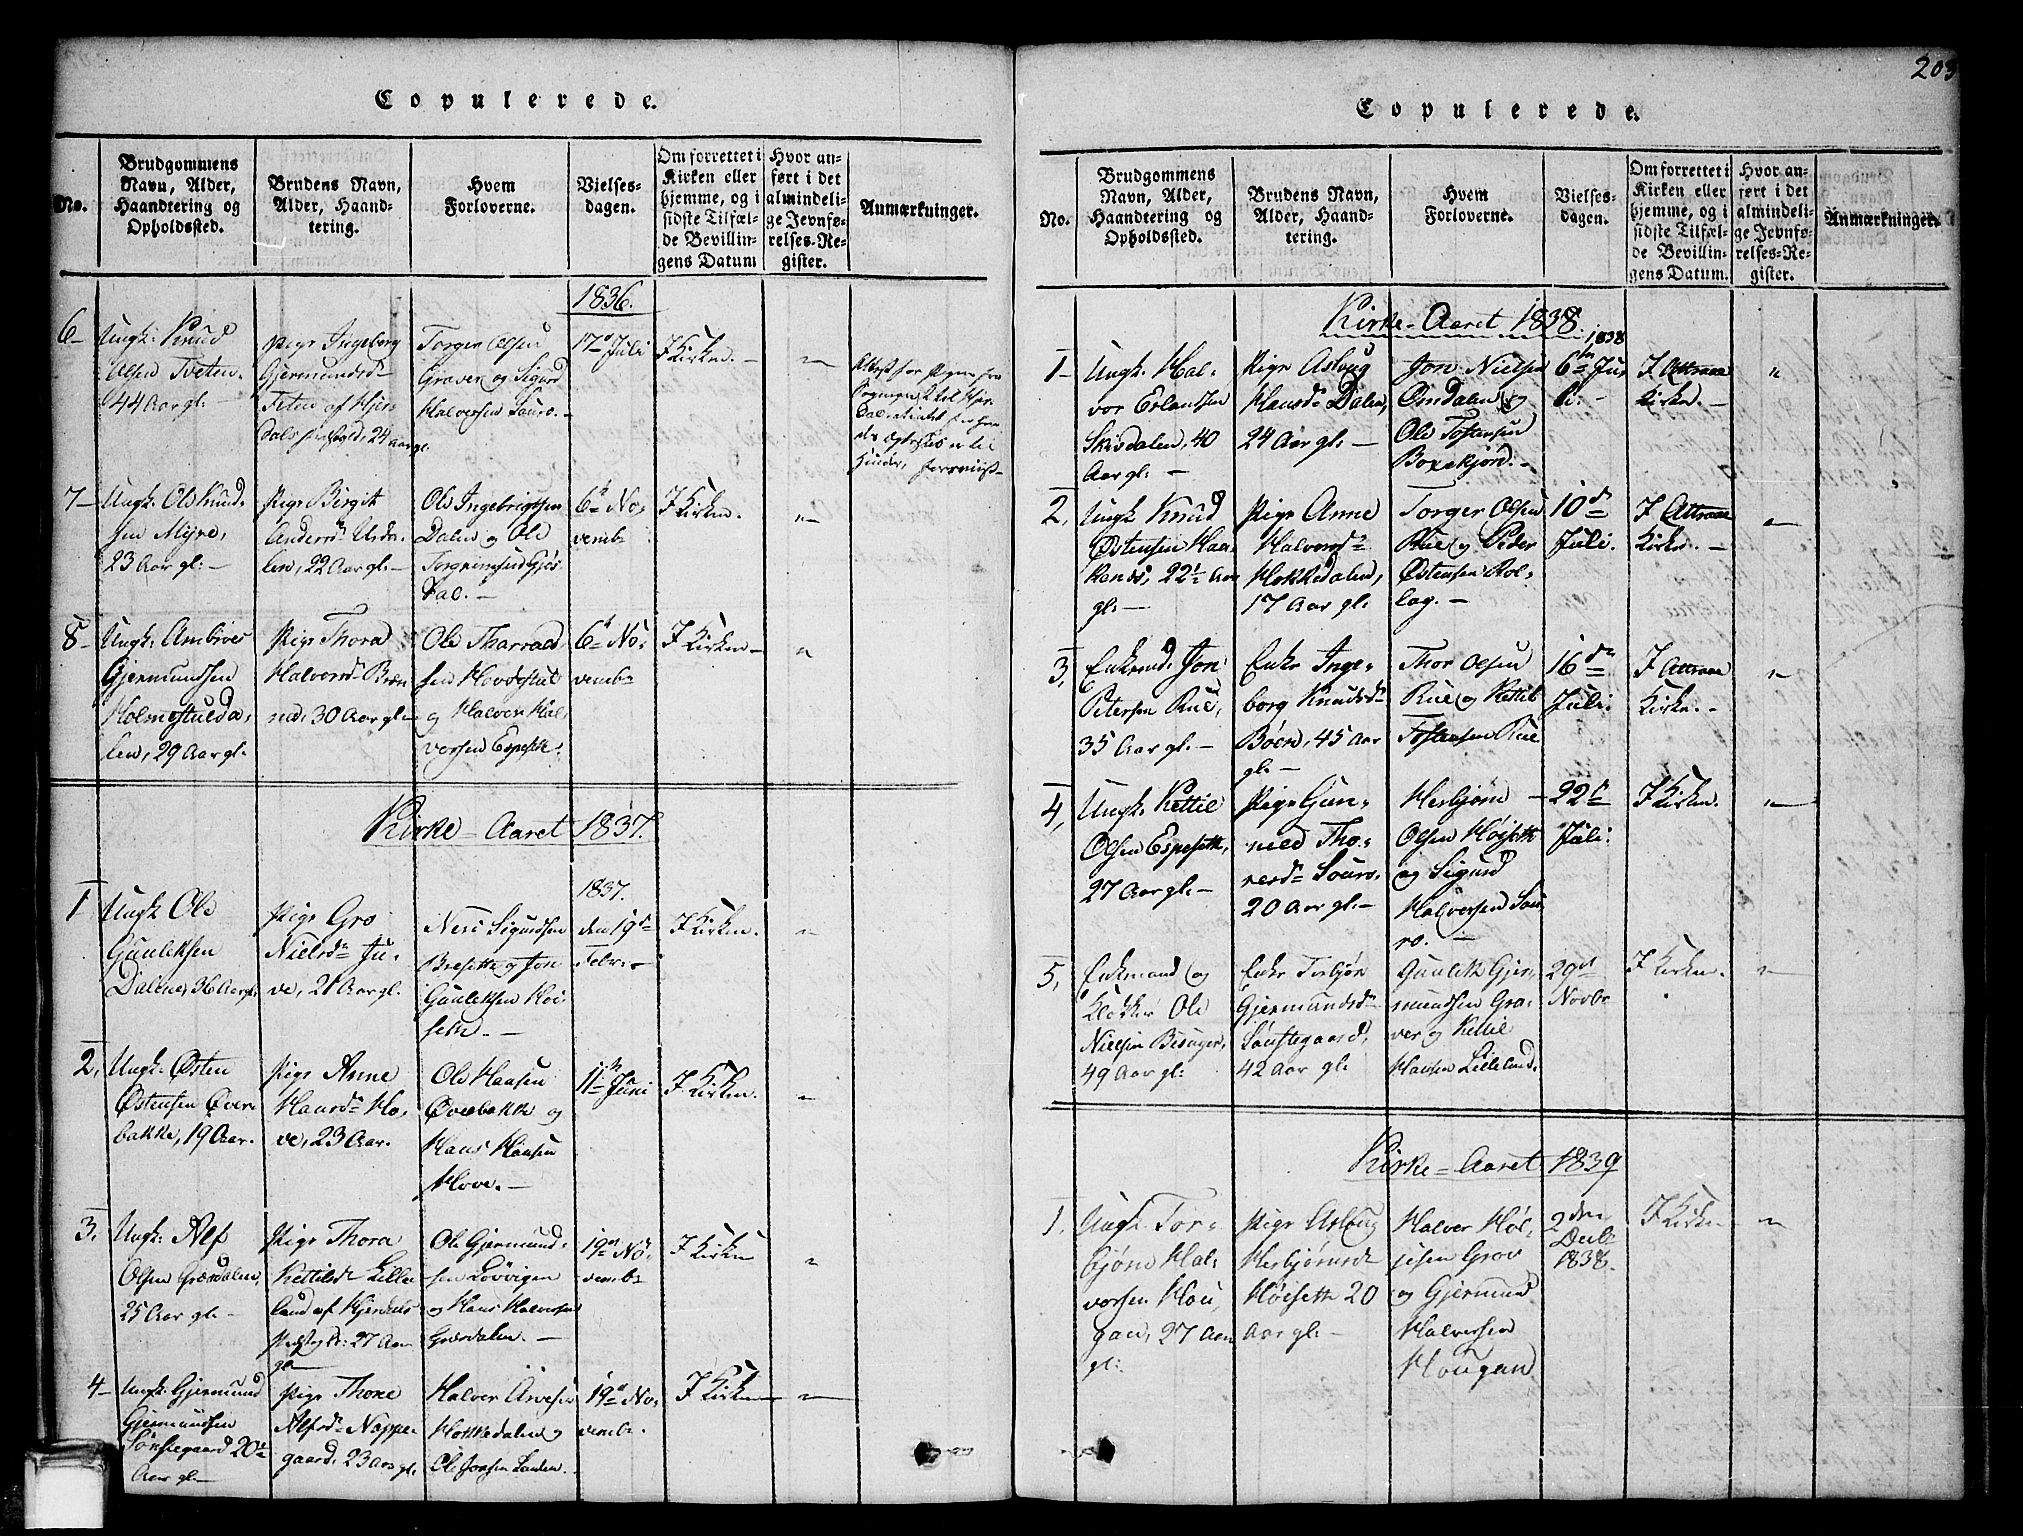 Copulerede.
No.
Brudgommens
Navn, Alder,
Haandtering og
Opholdssted.
Brudens Navn,
Alder, Haand-
tering.
Hvem
Forloverne.
Vielses-
dagen.
Om forrettet i
Kirken eller
hjemme, og i
sidste Tilfæl-
de Bevillin-
gens Datum
Hvor an-
ført i det
almindeli-
ge Jevnfø-
relses-Re-
gister.
Anmærkninger.
1836.
6-
Ungk: Knud
Olsen Tveten
44 Aar gl:-
Pige Ingeborg
Gjermundsd
af Hjer-
dals Præstegld: 24 aar
gl.
Torger Olsen
Graver og Sigurd
Halversen Sauro.-
17de Juli
I Kirken.-
"-
7-
Ungk: Ole Knud-
sen Myre,
23 Aar gl:-
Pige Birgit
Andersd:
len, 22 Aar gl:-
Ole Ingebrigtsen
Dalen og Ole
Torgrimsen Gjøs
dal.-
6te No-
vemb
I Kirken.
"-
8-
Ungk: Ambros
Gjermundsen
Holmestulda-
len, 29 Aar gl.
Pige Thora
Halvorsd Bræn
ned, 30 Aar gl-
Ole Tharrald-
sen Hovdestul
og Halver Hal-
vorsen Espesett.
6te No-
vemb
I Kirken-
"
Kirke-Aaret 1837.
1837.
1
Ungk Ole
Gunleksen
Dalene, 36 Aar gl.
Pige Gro
Nielsd Ju-
ve, 21 Aar gl.
Neri Sigurdsen
Bresette og Jon
Gunleksen Hoi-
seth.-
den 19de
Febr.-
I Kirken.
"-
2,
Ungk: Østen
Østensen Øver
bakke, 19 Aar.
Pige Anne
Hansd Ho-
ve, 23 Aar.
Ole Hansen
Øverbakke og
Hans Hansen
Hove.-
11te Juni
I Kirken.
"-
3.
Ungk: Alf
Olsen Grasdalen,
25 Aar gl-
Pige Thora
Kettilsd Lille
land af Hjerdals
Præstegld: 27 Aar
gl-
Ole Gjermund-
sen Løvvigen
og Hans Halversen
Grasdalen.-
19de No-
vemb
I Kirken
"
4-
Ungk: Gjermund
Gjermundsen
Sønstegaard 20
Aar gl-
Pige Thone
Alfsd Noppe-
gaard, 23 Aar gl.
Halver Arvesen
Hokkedalen og
Ole Jonsen Landen.
19de No-
vemb.
I Kirken
"-
203
Copulerede.
No.
Brudgommens
Navn, Alder,
Haandtering og
Opholdssted.
Brudens Navn,
Alder, Haand-
tering.
Hvem
Forloverne.
Vielses-
dagen.
Om forrettet i
Kirken eller
hjemme, og i
sidste Tilfæl-
de Bevillin-
gens Datum.
Hvor an-
ført i det
almindeli-
ge Jevnfø-
relses-Re-
gister.
Anmærkninger.
Kirke-Aaret 1838.
1838
1-
Ungk: Hal-
vor Erlandsen
Skisdalen, 40
Aar gl:-
Pige Aslaug
Hansd Dalen,
24 Aar gl:-
Jon Nielsen
Omdalen og
Ole Tostensen
Boxekjøn.-
6te Ju-
li.-
I Attraae
Kirke.-
"
2,
Ungk Knud
Østensen Haa-
kenes, 22½ Aar
gl:-
Pige Anne
Halvorsd
Hokkedalen,
17 Aar gl:
Torger Olsen
Rue og Peder
Østensen Rol-
lag.-
10de
Juli.
I Attraae
Kirke.-
"-
3,
Enkemd: Jon
Petersen Rue,
35 Aar gl:-
Enke Inge-
borg Knudsd
Bøen, 45 Aar
gl.-
Thor Olsen
Rue og Kettil
Tostensen Rue
16de
Juli.
I Attraae
Kirke.-
"-
4,
Ungk: Kettil
Olsen Espesett,
27 Aar gl:-
Pige Gun-
ned Tho-
resd Sauro,
20 Aar gl:-
Herbjørn
Olsen Høisett
og Sigurd
Halversen Sau-
ro.-
22de
Juli.
I Kirken.
"-
5,
Enkemand og
Klokker Ole
Nielsen Bernger,
49 Aar gl:
Enke Torbjør
Gjermundsd
Sønstegaard,
42 Aar gl:
Gunlek Gjer-
mundsen Gra-
ver og Kettil
Hansen Lilleland.
29de
Novbr
I Kirken.
"-
Kirke-Aaret 1839
1.
Ungk: Tor-
bjørn Hal-
vorsen Hou-
gan, 27 Aar
gl:
Pige Aslaug
Herbjørnsd
Høisett 20
Aar gl:-
Halver Høl-
jesen Grov
og Gjermund
Halversen
Hougan
2den
Decbr
1838.
I Kirken
"-